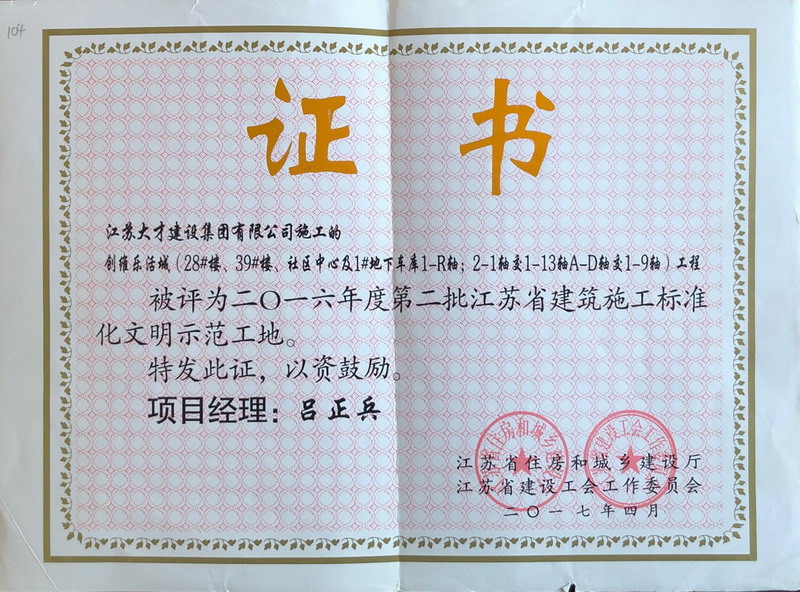 104
证书
江苏大才建设集团有限公司施工的
创维乐活城（28#楼、39#楼、社区中心及1#地下车库1-R轴；2-1轴交1-13轴A-D轴交1-9轴）工程
被评为二〇一六年度第二批江苏省建筑施工标准
化文明示范工地。
特发此证，以资鼓励。
项目经理：吕正兵
江苏省住房和城乡建设厅
江苏省建设工会工作委员会
二〇一七年四月